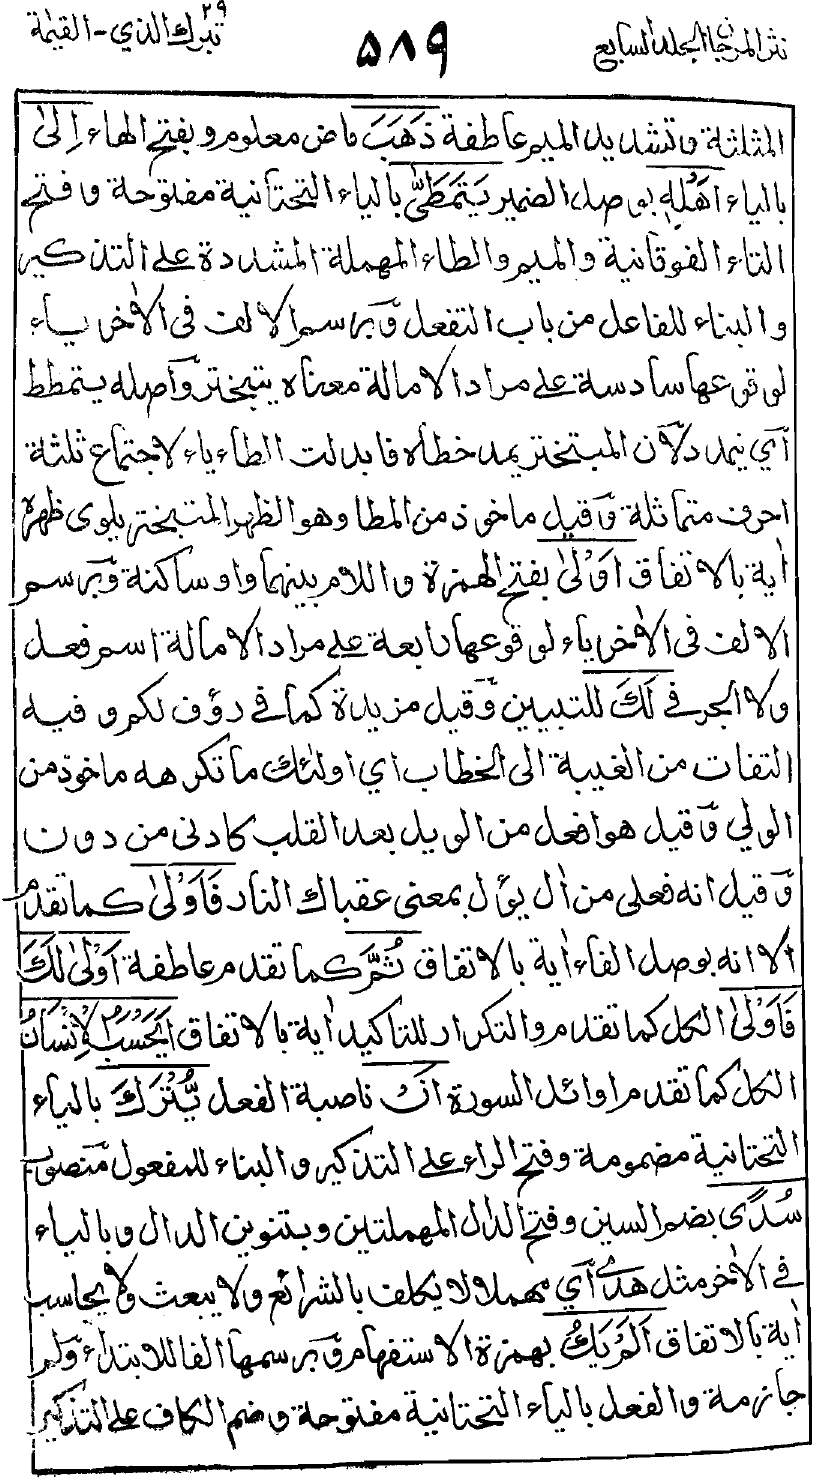 نثر المرجان المجلد السابع
٥٨٩
تبرك الذي ٢٩ - القيمة
المثلثة وتشديد الميم عاطفة ذَهَبَ ماض معلوم وبفتح الهاء اِلىٰ
بالياء اَهْلِهٖ بوصل الضمير يَتَمَطّىٰ بالياء التحتانية مفتوحة وفتح
التاء الفوقانية والميم والطاء المهملة المشددة على التذكير
والبناء للفاعل من باب التفعل وبرسم الالف فى الاٰخر ياء
لوقوعها سادسة على مراد الامالة معناه يتبختر واصله يتمطط
اي يمد دلان المبتختر يمد خطاه فابدلت الطاء ياء لاجتماع ثلثة
احرف متماثلة وقيل ماخوذ من المطا وهو الظهر المتبختر يلوى ظهره
اٰية بالاتفاق اَوْلىٰ بفتح الهمزة واللام بينهما واو ساكنة وبرسم
الالف فى الاٰخر ياء لوقوعها رابعة على مراد الامالة اسم فعل
ولا الجر في لَكَ للتبيين وقيل مزيدة كما في رؤف لكم وفيه
التفات من الغيبة الى الخطاب اي اولئك ما تكرهه ماخوذ من
الولي وقيل هو افعل من الويل بعد القلب كادنى من دون
وقيل انه فعلى من اٰل يؤل بمعنى عقباك النار فَاَوْلىٰ كما تقدم
الا انه بوصل الفاء اٰية بالاتفاق ثُمَّ كما تقدم عاطفة اَوْلىٰ لَكَ
فَاَوْلىٰ الكل كما تقدم والتكرار للتاكيد اٰية بالاتفاق اَيَحْسَبُ الْاِنْسَانُ
الكل كما تقدم اوائل السورة اَنْ ناصبة الفعل يُّتْرَكَ بالياء
التحتانية مضمومة وفتح الراء على التذكير والبناء للمفعول منصوب
سُدًى بضم السين وفتح الدال المهملتين وبتنوين الدال وبالياء
في الاٰخر مثل هدى اي مهملا لا يكلف بالشرائع ولا يبعث ولا يحاسب
اٰية بالاتفاق اَلَمْ يَكُ بهمزة الاستفهام وبرسمها الفا للابتداء ولم
جازمة والفعل بالياء التحتانية مفتوحة وضم الكاف على التذكير